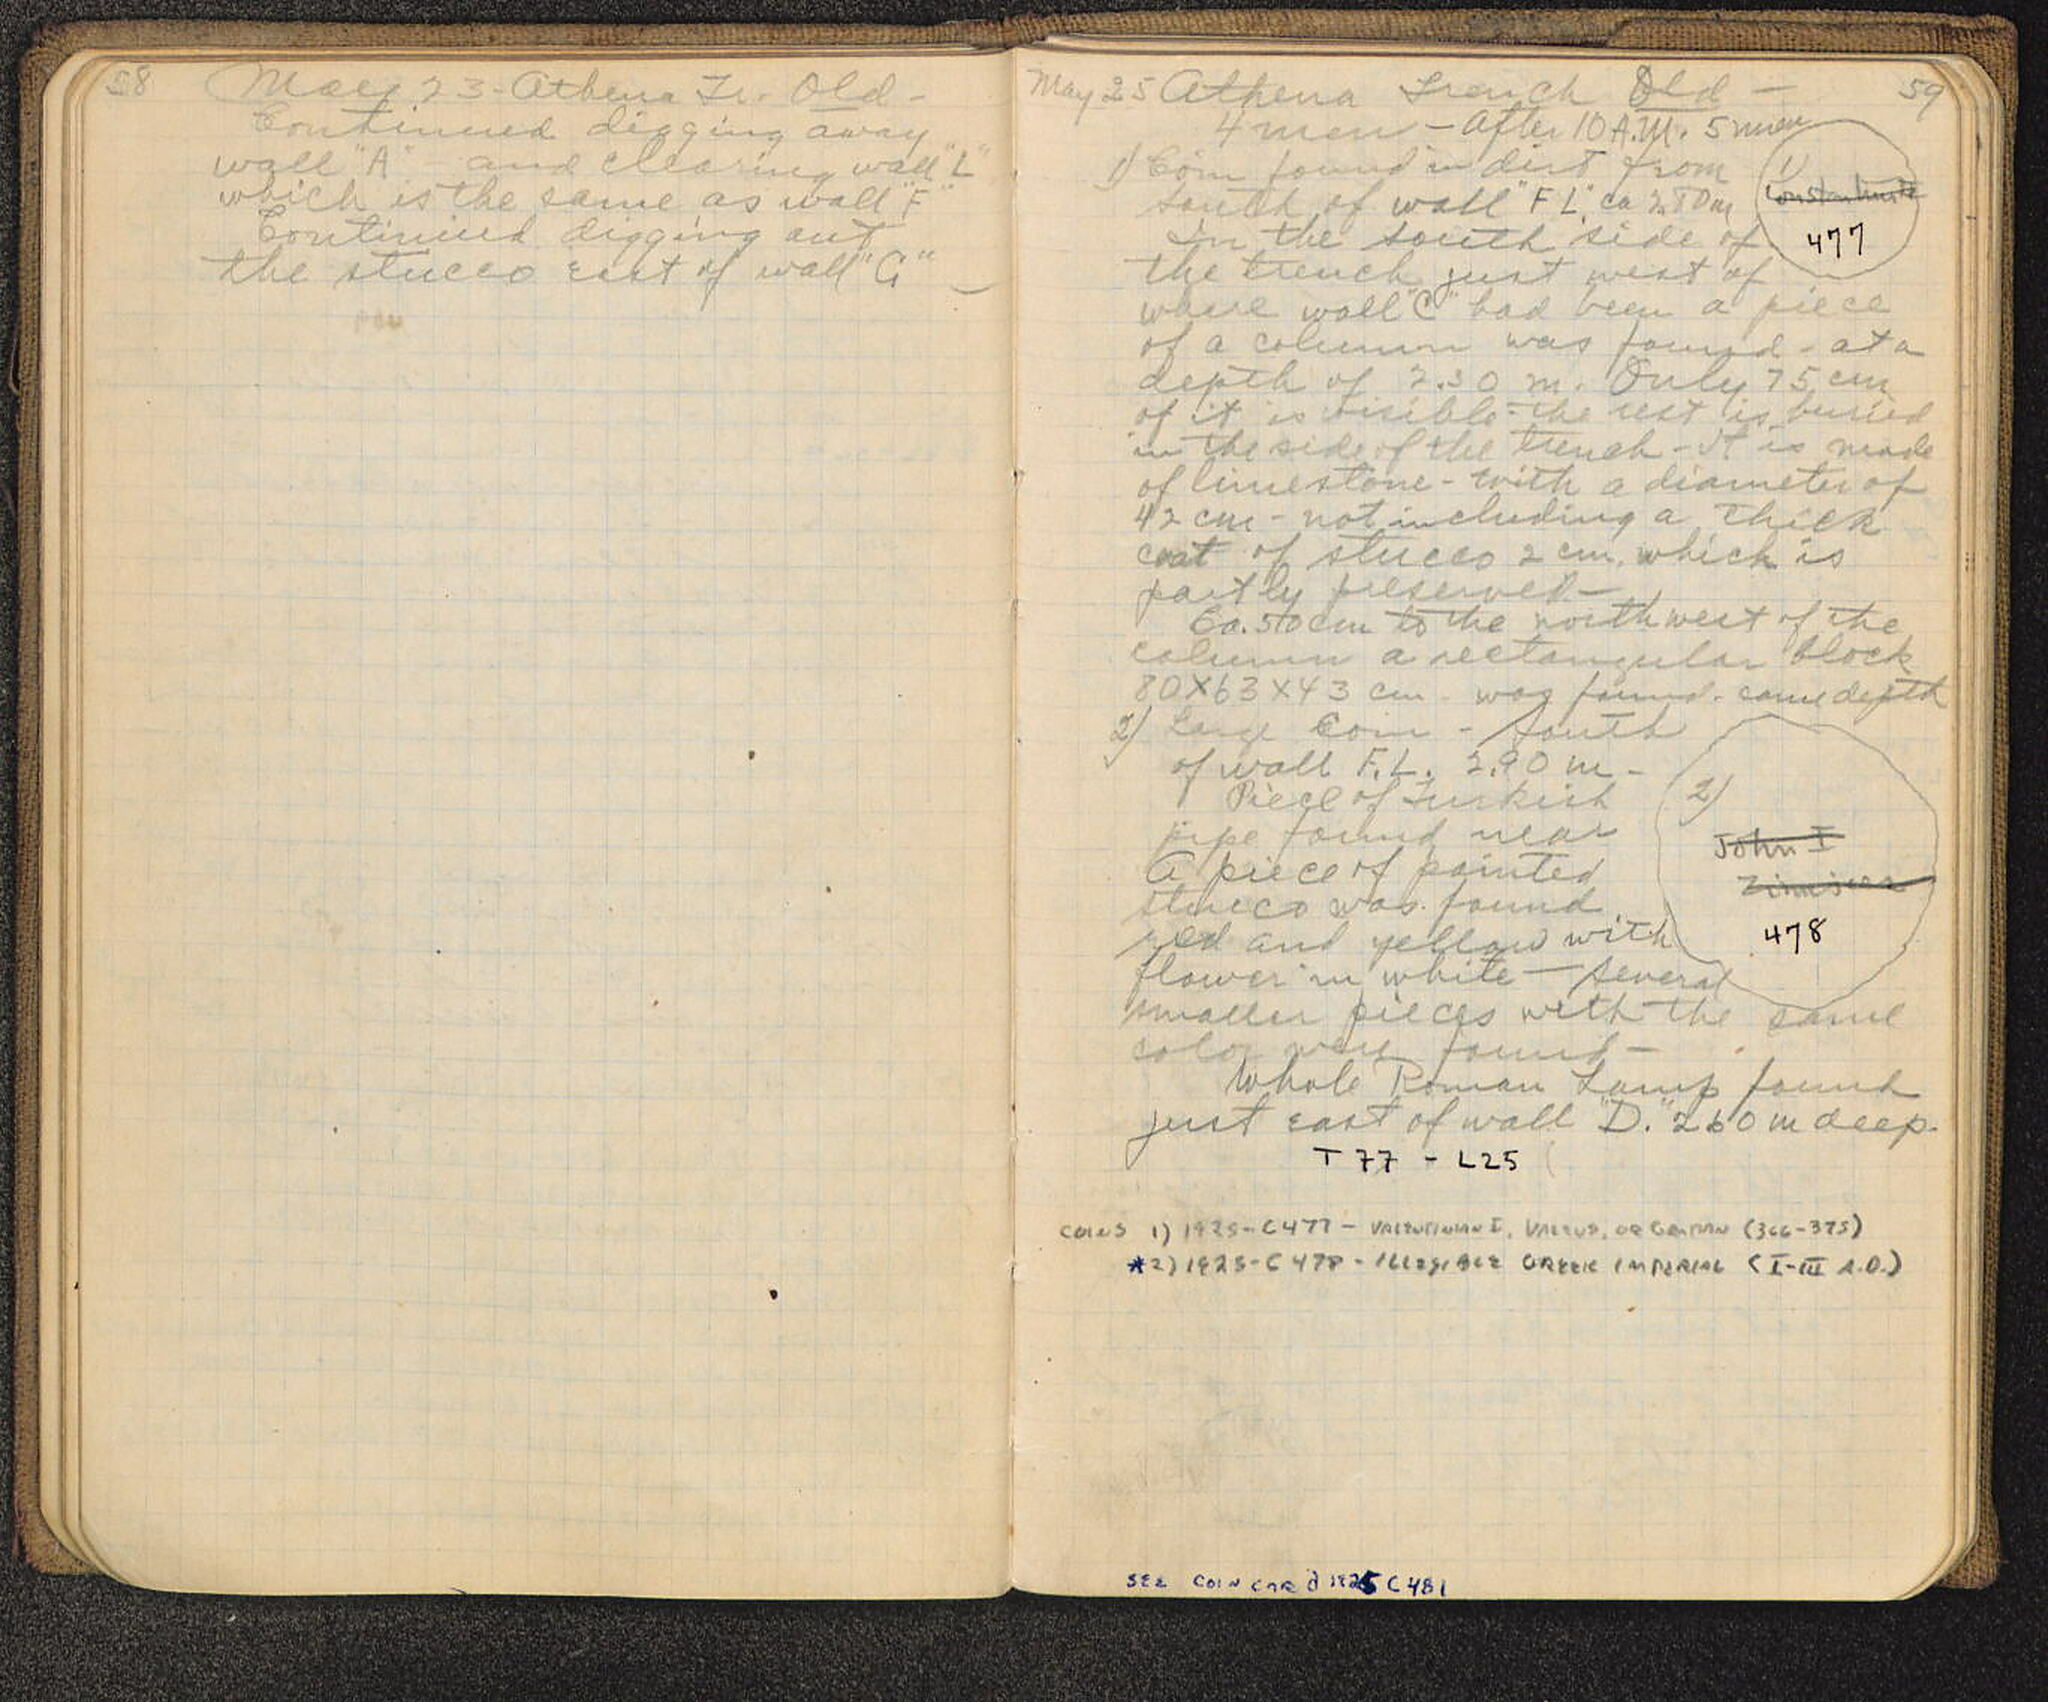 58 May 23 - Athena Tr. Old -
Continued digging away
wall "A" - and clearing wall "L"
which is the same as wall "F"
Continued digging out
the stucco east of wall "G" -
May 25 Athena Trench Old - 59
4 men - after 10 A.M. 5 men
1) Coin found in dirt from
south of wall "F L". ca 2.80 m
1)
Constantinite
477
In the south side of
the trench just west of
where wall "C" had been a piece
of a column was found - at a
depth of 2.30 m. Only 75 cm
of it is visible - the rest is buried
in the side of the trench - It is made
of limestone - with a diameter of
42 cm - not including a thick
coat of stucco 2 cm. which is
partly preserved -
Ca. 50 cm to the northwest of the
column a rectangular block
80 X 63 X 43 cm - was found - same depth
2) Large Coin - South
of wall F.L. 2.90 m -
Piece of Turkish
pipe found near
A piece of painted
stucco was found
red and yellow with
flower in white - several
smaller pieces with the same
color were found -
2)
John I
Zimisces
478
Whole Roman Lamp found
just east of wall "D." 2.60 m deep.
T 77 - L25
COINS 1) 1925 - C477 - VALENTINIAN I, VALENS, OR GRATIAN (366-375)
*2) 1925 - C478 - ILLEGIBLE GREEK IMPERIAL (I-III A.D.)
SEE COIN CARD 1925 C481